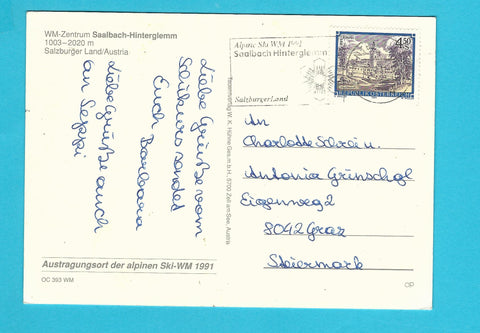 WM-Zentrum Saalbach-Hinterglemm
1003–2020 m
Salzburger Land/Austria
Liebe Grüße vom
Skikurs sendet
Euch Barbara
Liebe Grüße auch
an Seppi
Austragungsort der alpinen Ski-WM 1991
OC 393 WM
Tauernverlag W. K. Hühne Ges.m.b.H., 5700 Zell am See, Austria
Alpine Ski WM 1991
Saalbach Hinterglemm
SalzburgerLand
4.50
REPUBLIK ÖSTERREICH
An
Charlotte Schrei u.
Antonia Grünschgl
Eigenweg 2
8042 Graz
Steiermark